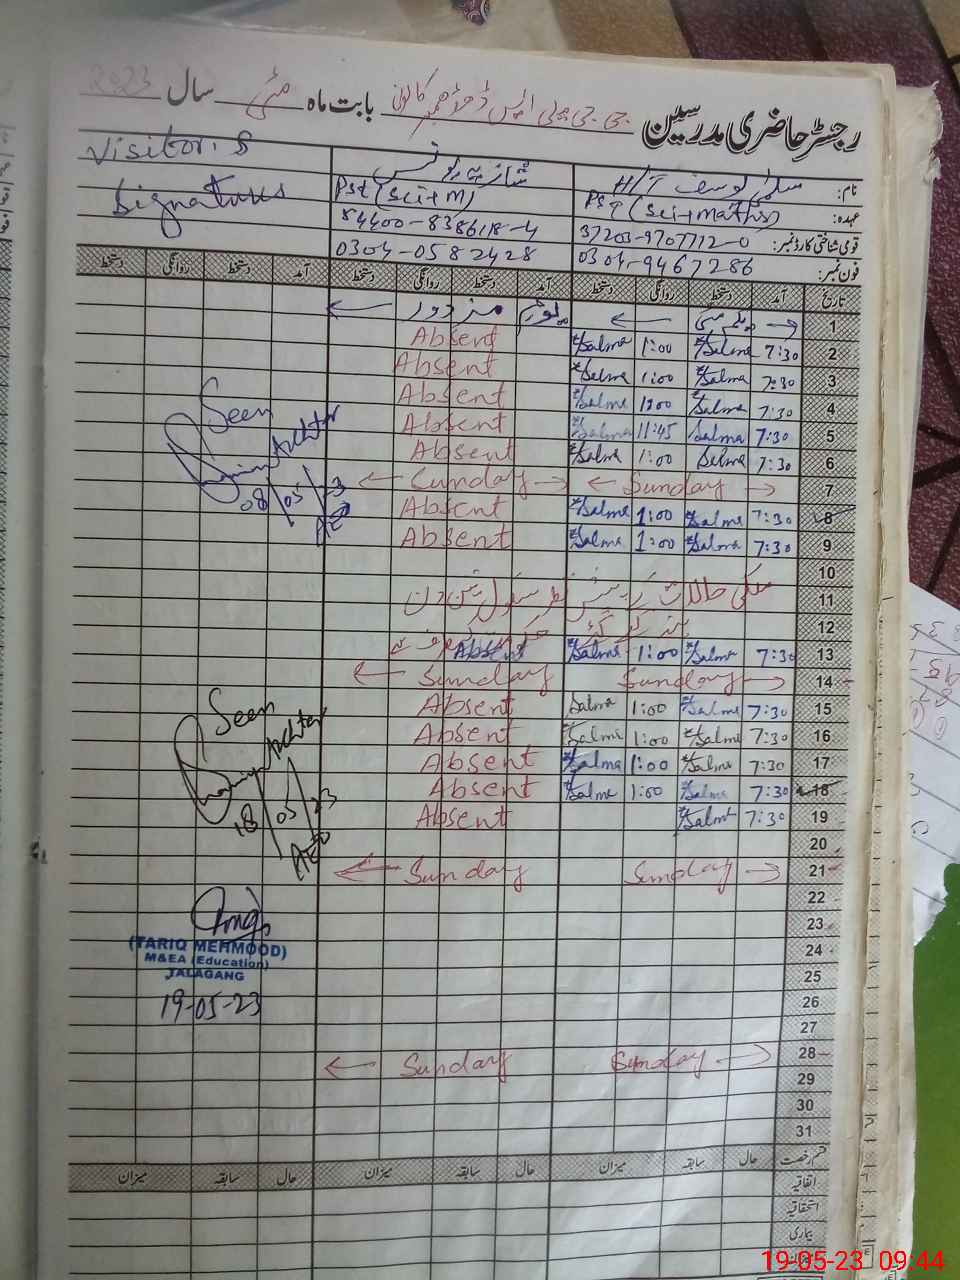 رجسٹر حاضری مدرسین بابت ماہ مئی سال 2023
نام: سلمیٰ یوسف H/T شازیہ یونس Visitor's
عہدہ: PST (Sci+Maths) Pst (Sci+M) Signatures
قومی شناختی کارڈ نمبر: 37203-9707712-0 54400-8386118-4
فون نمبر: 0304-9467286 0304-0582428
تاریخ آمد دستخط روانگی دستخط آمد دستخط روانگی دستخط آمد دستخط روانگی دستخط
1 یکم مئی یوم مزدور
2 7:30 Salma 1:00 Salma Absent
3 7:30 Salma 1:00 Salma Absent
4 7:30 Salma 1:00 Salma Absent
5 7:30 Salma 11:45 Salma Absent
6 7:30 Salma 1:00 Salma Absent
7 Sunday Sunday
8 7:30 Salma 1:00 Salma Absent
9 7:30 Salma 1:00 Salma Absent
Seen
Akhtar
08/05/23
AEO
10
11 ملکی حالات کے پیش نظر سکول تین دن
12 بند کیے گئے
13 7:30 Salma 1:00 Salma Absent
14 Sunday Sunday
15 7:30 Salma 1:00 Salma Absent
16 7:30 Salma 1:00 Salma Absent
17 7:30 Salma 1:00 Salma Absent
18 7:30 Salma 1:00 Salma Absent
19 7:30 Salma Absent
Seen
Akhtar
18/05/23
AEO
20
21 Sunday Sunday
22
23
24
25
26
27
(TARIQ MEHMOOD)
M&EA (Education)
JALAGANG
19-05-23
28 Sunday Sunday
29
30
31
قسم رخصت حال سابقہ میزان حال سابقہ میزان حال سابقہ میزان
اتفاقیہ
استحقاقیہ
بیماری
19-05-23 09:44